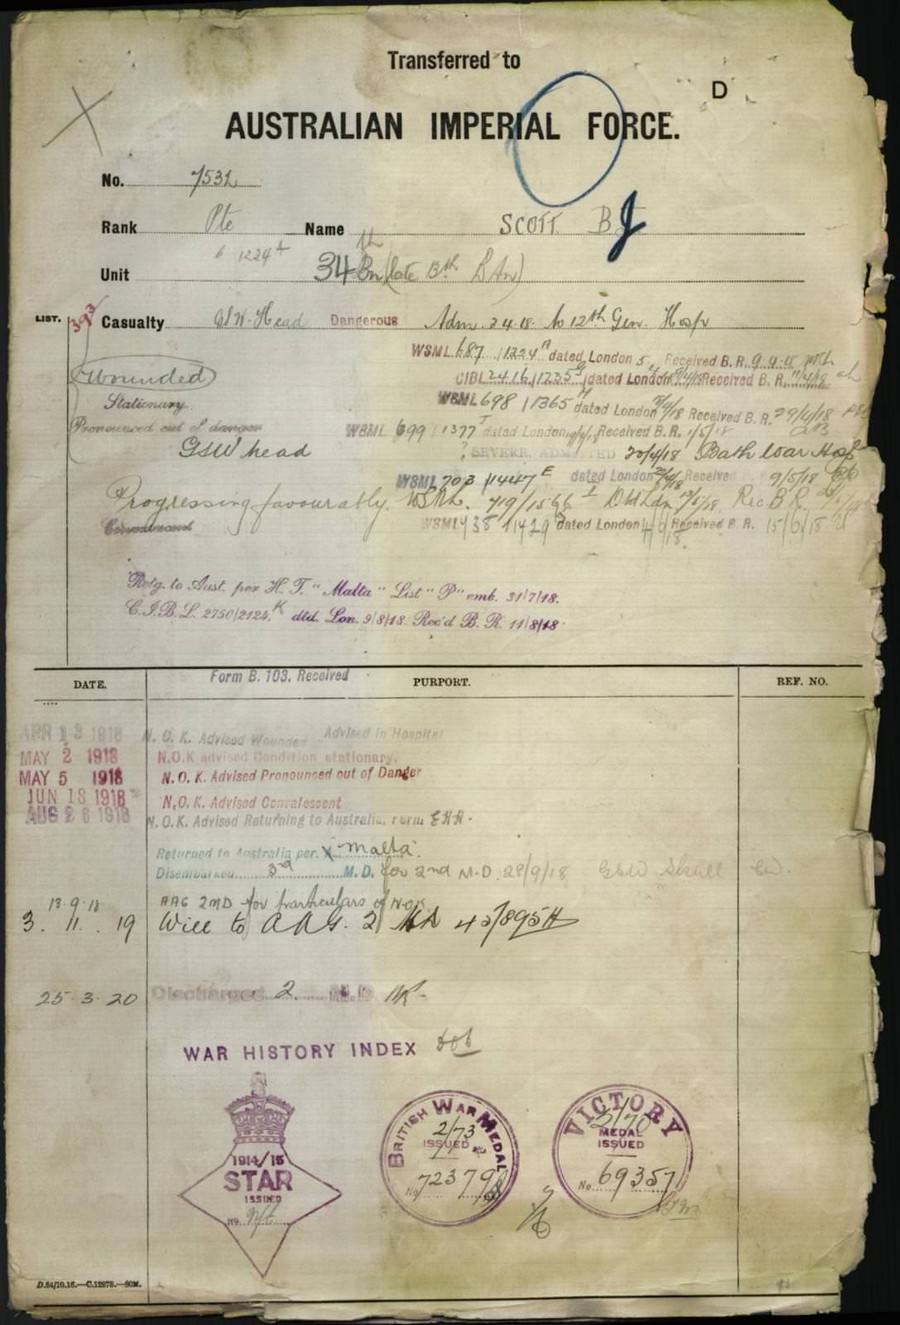 Transferred to
D
AUSTRALIAN IMPERIAL FORCE.
No. 7532
Rank Pte Name SCOTT B J
1224
Unit 34th Bn (late 13th BAn)
LIST. 393 Casualty GSW. Head Dangerous Adm. 2.4.18. to 12th Gen. Hosp
WSML 687 1224 dated London 5 Received B. R. 9.4.18
CIBL 2416/1235 dated London Received B. R. 11/4/18
Wounded
Stationary WSML 698 1365 dated London Received B. R. 29/4/18
Pronounced out of danger WSML 699 1377 dated London Received B. R. 1/5/18
GSW head ? SEVERE. ADMITTED 20/4/18 Bath War Hosp
WSML 703 1447 E dated London Received 9/5/18
Progressing favourably. WSML. 719/1566 Dtd Ldn Rec B R.
Convalescent WSML 738 1429 dated London Received B. R. 15/6/18
Retg. to Aust. per H. T. "Malta" List "P" emb. 31/7/18.
C.I.B.L. 2750/2124 K dtd. Lon. 9/8/18. Rec'd B. R. 11/8/18.
Form B. 103, Received
DATE. PURPORT. REF. NO.
APR 13 1918 N. O. K. Advised Wounded Advised in Hospital
MAY 2 1918 N.O.K advised Condition stationary.
MAY 5 1918 N. O. K. Advised Pronounced out of Danger
JUN 18 1918 N.O.K. Advised Convalescent
AUG 26 1918 N.O.K. Advised Returning to Australia. Form
Returned to Australia per. Malta
Disembarked 3rd M.D. for 2nd M.D. 28/9/18 GSW Skull
13.9.18 AAG 2MD for particulars of NOK
3. 11. 19 Will to AAG. 2 MD
25.3.20 Discharged 2 M.D.
WAR HISTORY INDEX
1914/15
STAR
ISSUED
No.
BRITISH WAR MEDAL
2/73
ISSUED
No. 72379
VICTORY
2/70
MEDAL
ISSUED
No. 69357
D.84/10.16.—C.12978.—50M.